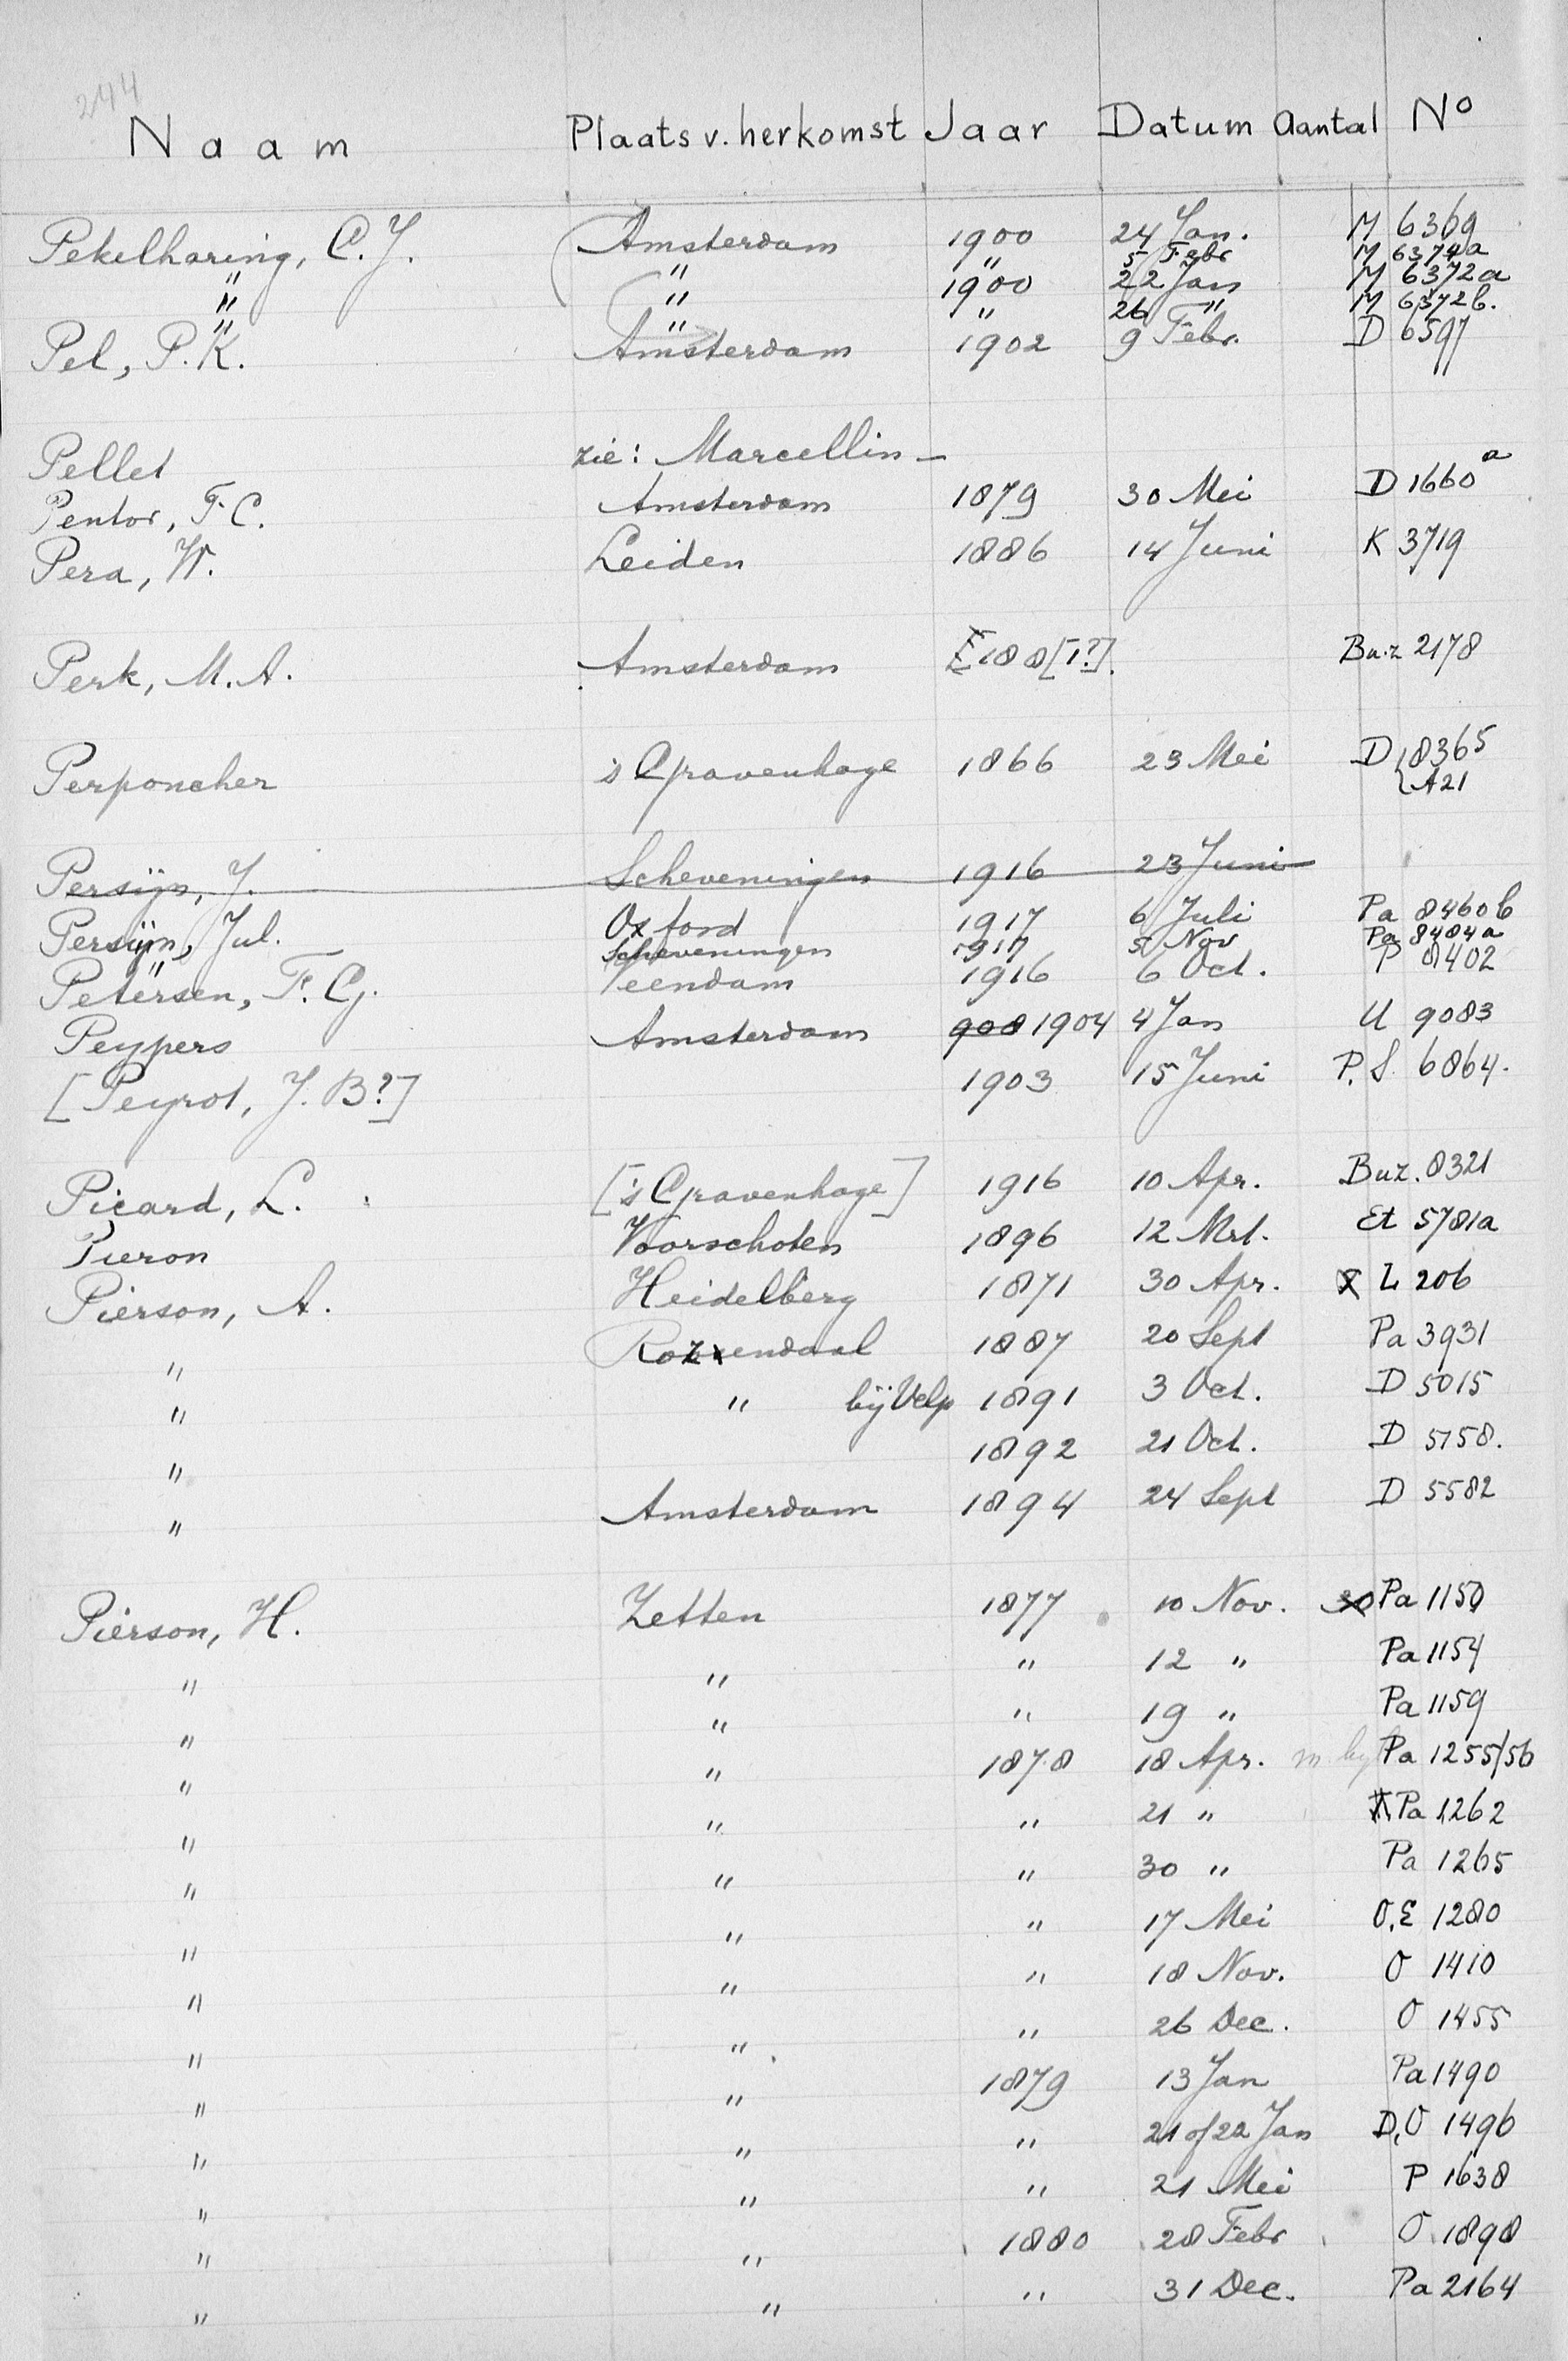 244
Naam Plaats v. herkomst Jaar Datum Aantal No
Pekelharing, C.J. Amsterdam 1900 24 Jan. M 6369
" " " 5 Febr M 6374a
" " 1900 22 Jan M 6372a
" " " 26 " M 6372b.
Pel, P.K. Amsterdam 1902 9 Febr. D 6597
Pellet zie: Marcellin -
Pentor, F.C. Amsterdam 1879 30 Mei D 1660a
Pera, W. Leiden 1886 14 Juni K 3719
Perk, M.A. Amsterdam 188[1?]. Bu.z 2178
Perponcher 's Gravenhage 1866 23 Mei D 8365
A21
Persijn, J. Scheveningen 1916 23 Juni
Persijn, Jul. Oxford 1917 6 Juli Pa 8460b
" Scheveningen 1917 5 Nov Pa 8484a
Petersen, F.G. Veendam 1916 6 Oct. P 8402
Peypers Amsterdam 908 1904 4 Jan U 9083
[Peyrot, J.B?] 1903 15 Juni P.S. 6864.
Picard, L. ['s Gravenhage] 1916 10 Apr. Buz. 8321
Pieron Voorschoten 1896 12 Mrt. Et 5781a
Pierson, A. Heidelberg 1871 30 Apr. L 206
" Rozendaal 1887 20 Sept Pa 3931
" " bij Velp 1891 3 Oct. D 5015
" 1892 21 Oct. D 5158.
" Amsterdam 1894 24 Sept D 5582
Pierson, H. Zetten 1877 10 Nov. 30 Pa 1150
" " " 12 " Pa 1154
" " " 19 " Pa 1159
" " 1878 18 Apr. m. byl Pa 1255/56
" " " 21 " Pa 1262
" " " 30 " Pa 1265
" " " 17 Mei O,E 1280
" " " 18 Nov. O 1410
" " " 26 Dec. O 1455
" " 1879 13 Jan Pa 1490
" " " 21 of 22 Jan D,O 1496
" " " 21 Mei P 1638
" " 1880 28 Febr O 1898
" " " 31 Dec. Pa 2164